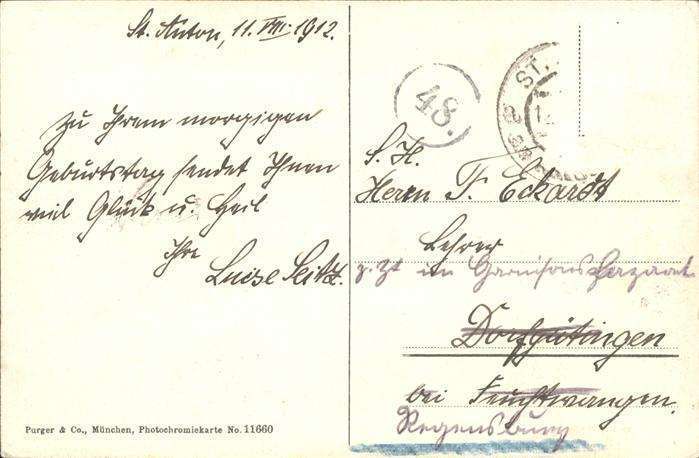 St. Anton, 11. VIII. 1912.
Zu Ihrem morgigen
Geburtstag sendet Ihnen
viel Glück u. Heil
Ihre
Luise Seitz.
Purger & Co., München, Photochromiekarte No. 11660
48.
ST.
S. H.
Herrn F. Eckardt
Lehrer
z. Zt im Garnisons
Dorfgütingen
bei Feuchtwangen.
Regensburg